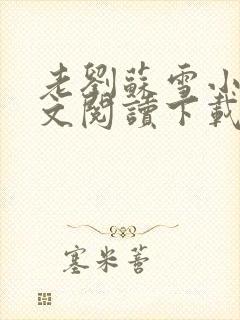 老劉蘇雪小
文閱讀下載
塞米蓍